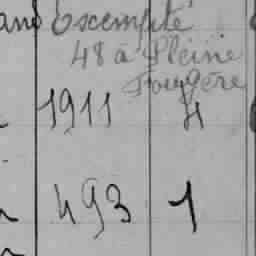 ans Exempté
48 à Pleine
Fougère
1911 4
493 1